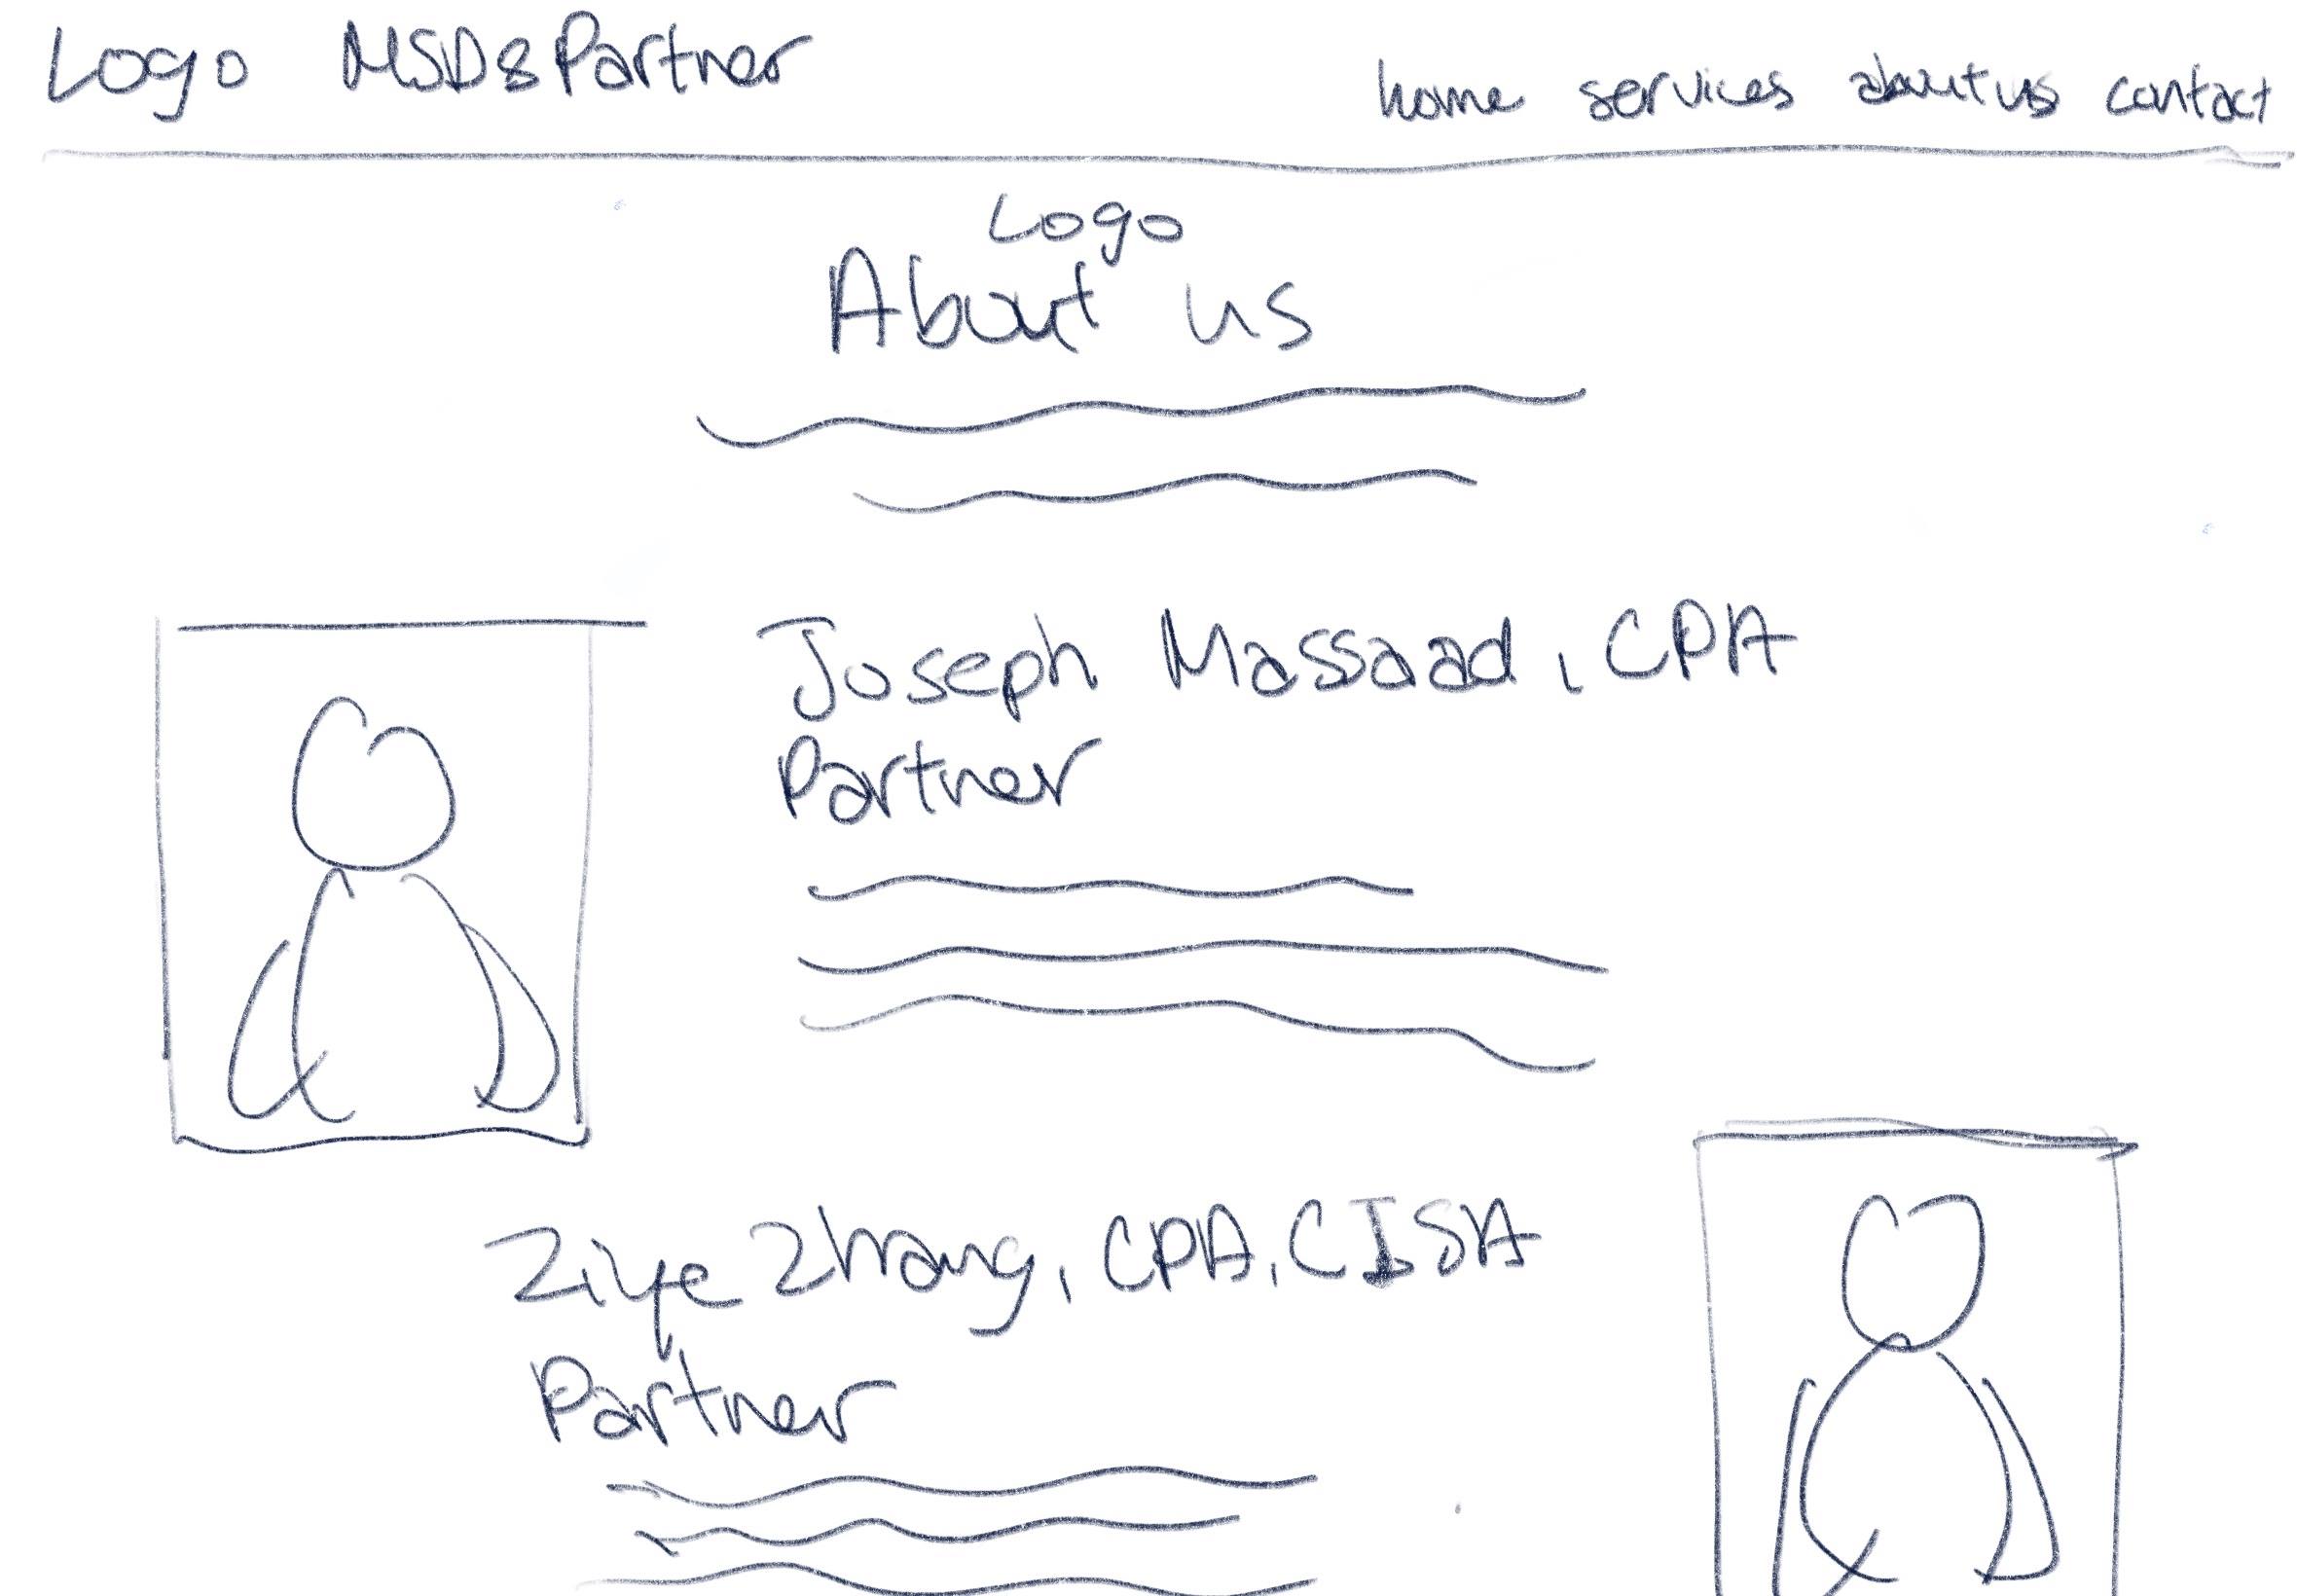 Logo MSD&Partner
home services about us contact
Logo
About us
Joseph Massaad, CPA
Partner
Ziye Zhang, CPA, CISA
Partner